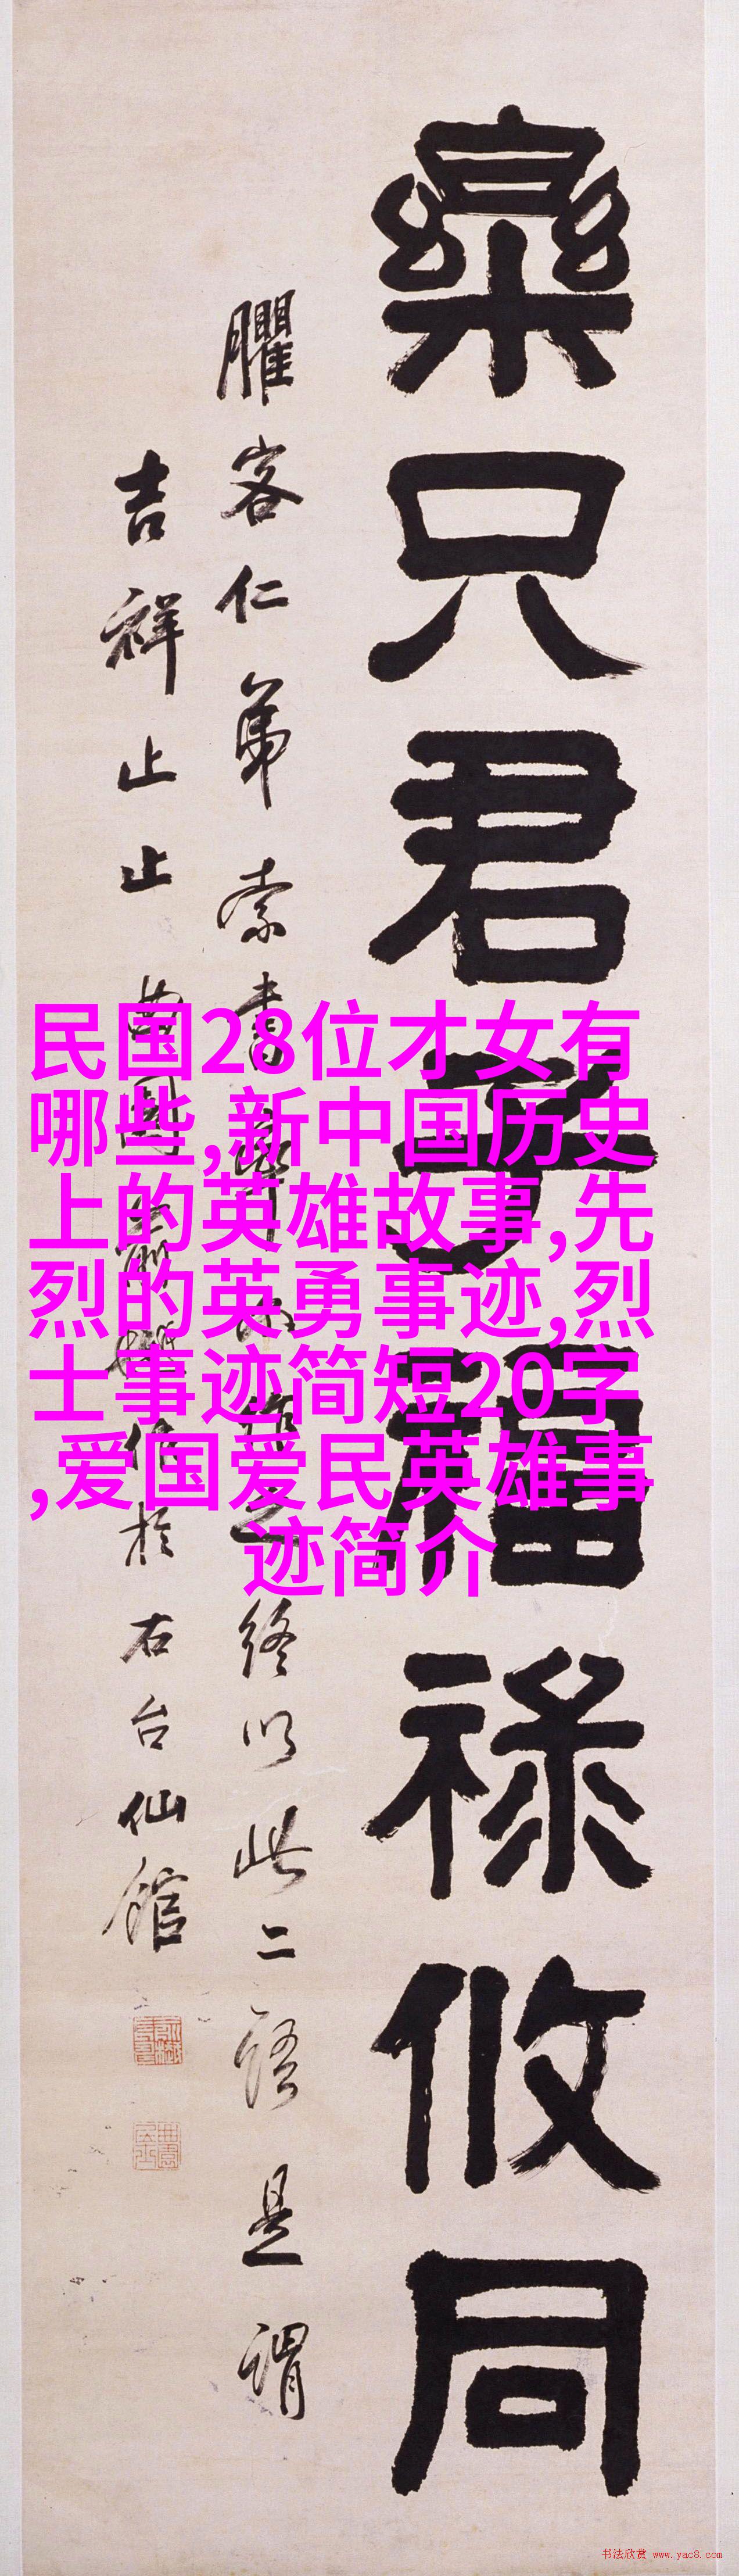 樂只君子福祿攸同
臞客仁弟索書
終以此二語是謂
吉祥止止曲園
作於右台仙館
民国28位才女有
哪些,新中国历史
上的英雄故事,先
烈的英勇事迹,烈
士事迹简短20字
,爱国爱民英雄事
迹简介
书法欣赏 www.yac8.com